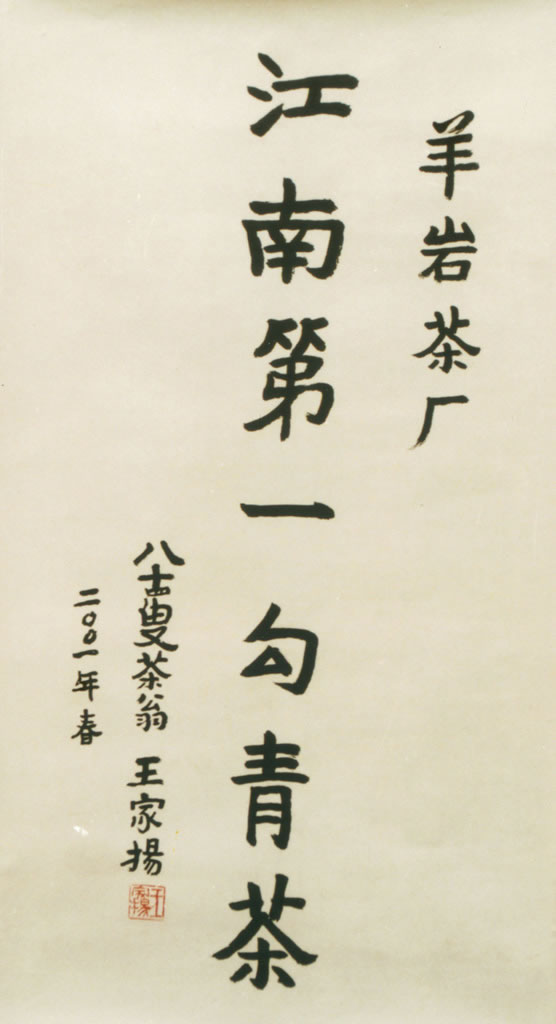 羊岩茶厂
江南第一勾青茶
八十四叟茶翁 王家揚
二〇〇一年春
王家揚